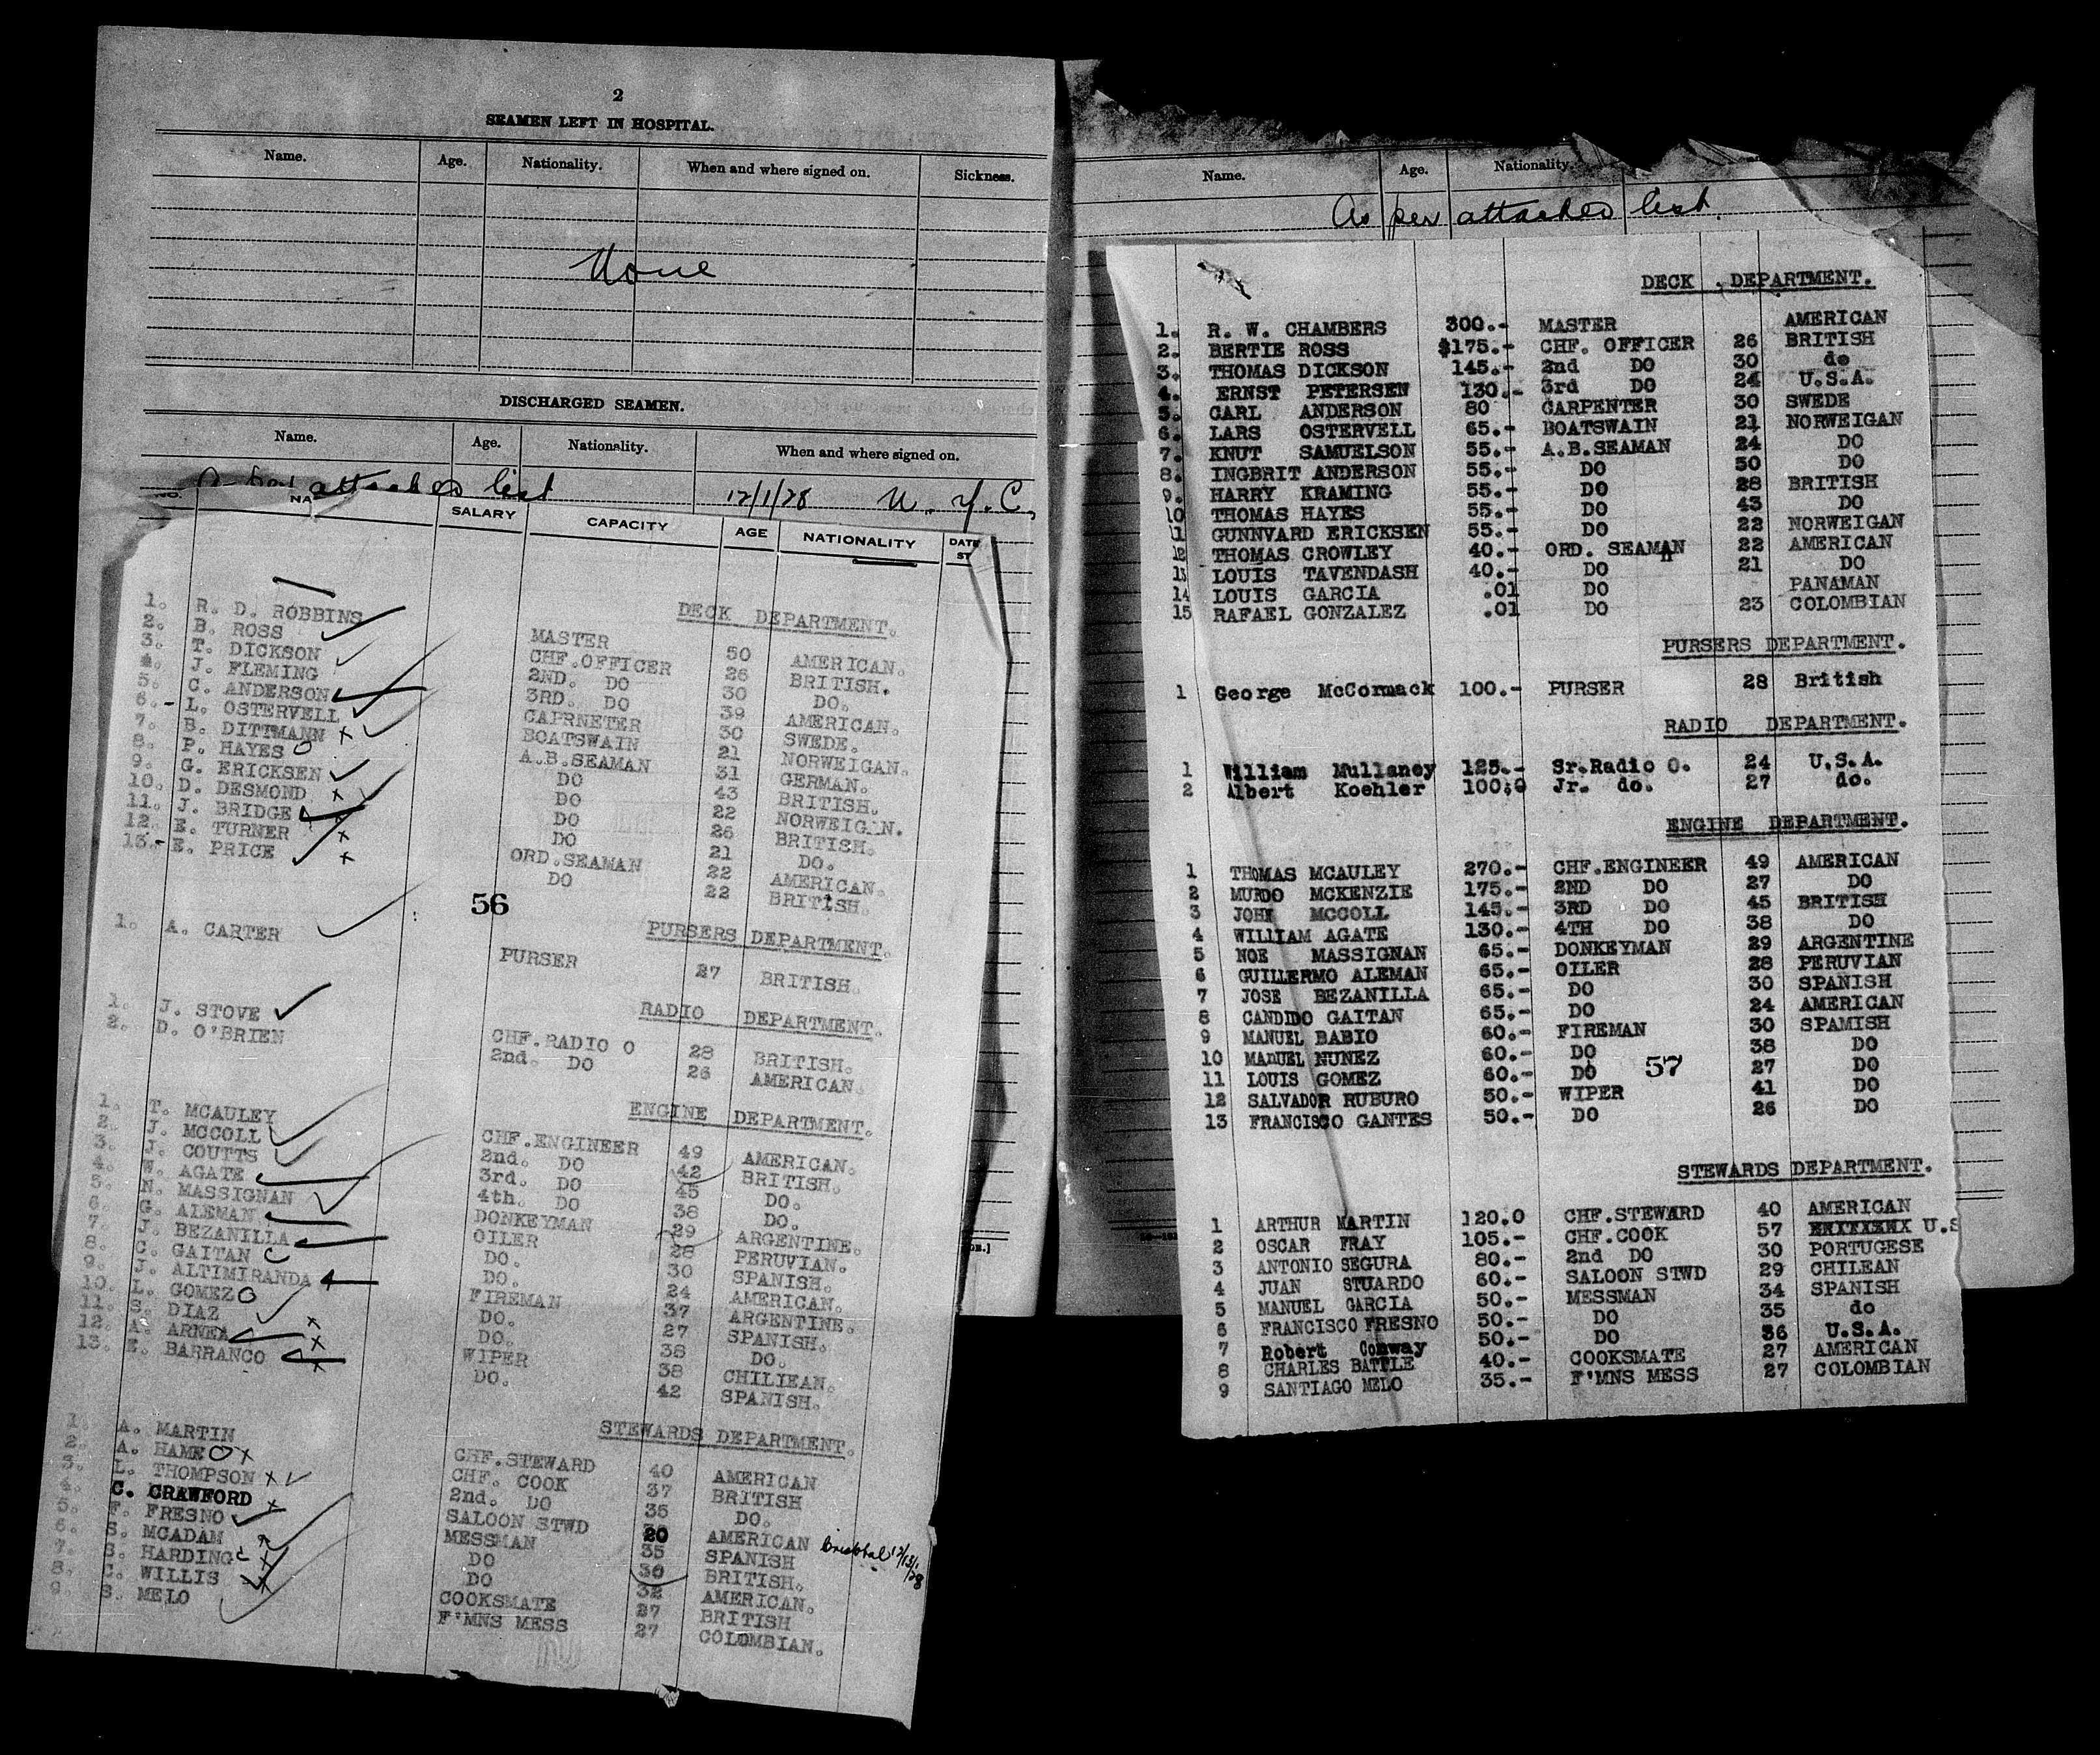 2
SEAMEN LEFT IN HOSPITAL.
Name. Age. Nationality. When and where signed on. Sickness.
None
DISCHARGED SEAMEN.
Name. Age. Nationality. When and where signed on.
attached list 12/1/28 N. Y. C.
NO. NA SALARY CAPACITY AGE NATIONALITY DATE ST
DECK DEPARTMENT.
1. R. D. ROBBINS MASTER 50 AMERICAN.
2. B. ROSS CHF.OFFICER 26 BRITISH.
3. T. DICKSON 2ND. DO 30 DO.
4. J. FLEMING 3RD. DO 39 AMERICAN.
5. C. ANDERSON CAPRNETER 30 SWEDE.
6.- L. OSTERVELL BOATSWAIN 21 NORWEIGAN.
7. B. DITTMANN x A.B.SEAMAN 31 GERMAN.
8. P. HAYES O DO 43 BRITISH.
9. G. ERICKSEN DO 22 NORWEIGAN.
10. D. DESMOND x DO 26 BRITISH.
11. J. BRIDGE x DO 21 DO.
12. E. TURNER x ORD.SEAMAN 22 AMERICAN.
13.- E. PRICE x DO 22 BRITISH.
56
PURSERS DEPARTMENT.
1. A. CARTER PURSER 27 BRITISH.
RADIO DEPARTMENT.
1. J. STOVE CHF.RADIO O 28 BRITISH.
2. D. O'BRIEN 2nd. DO 26 AMERICAN.
ENGINE DEPARTMENT.
1. T. MCAULEY CHF.ENGINEER 49 AMERICAN.
2. J. MCCOLL 2nd. DO 42 BRITISH.
3. J. COUTTS 3rd. DO 45 DO.
4. W. AGATE 4th. DO 38 DO.
5. N. MASSIGNAN DONKEYMAN 29 ARGENTINE.
6. G. ALEMAN OILER 28 PERUVIAN.
7. J. BEZANILLA DO. 30 SPANISH.
8. C. GAITAN DO. 24 AMERICAN.
9. J. ALTIMIRANDA FIREMAN 37 ARGENTINE.
10. L. GOMEZ O DO. 27 SPANISH.
11. S. DIAZ x DO. 38 DO.
12. A. ARNEA x WIPER 38 CHILIEAN.
13. E. BARRANCO x DO. 42 SPANISH.
STEWARDS DEPARTMENT.
1. A. MARTIN CHF.STEWARD 40 AMERICAN
2. A. HAME O x CHF. COOK 37 BRITISH
3. L. THOMPSON x 2nd. DO 36 DO.
4. C. CRAWFORD x SALOON STWD 20 AMERICAN Bristol 12/15/28
5. F. FRESNO MESSMAN 35 SPANISH
6. S. MCADAM x DO 30 BRITISH.
7. S. HARDING x DO 32 AMERICAN.
8. C. WILLIS x COOKSMATE 27 BRITISH
9. S. MELO F'MNS MESS 27 COLOMBIAN.
Name. Age. Nationality.
As per attached list.
DECK DEPARTMENT.
1. R. W. CHAMBERS 300.- MASTER AMERICAN
2. BERTIE ROSS $175.- CHF. OFFICER 26 BRITISH
3. THOMAS DICKSON 145.- 2nd DO 30 do
4. ERNST PETERSEN 130.- 3rd DO 24 U.S.A.
5. CARL ANDERSON 80 CARPENTER 30 SWEDE
6. LARS OSTERVELL 65.- BOATSWAIN 21 NORWEIGAN
7. KNUT SAMUELSON 55.- A.B.SEAMAN 24 DO
8. INGBRIT ANDERSON 55.- DO 50 DO
9. HARRY KRAMING 55.- DO 28 BRITISH
10 THOMAS HAYES 55.- DO 43 DO
11 GUNNVARD ERICKSEN 55.- DO 22 NORWEIGAN
12 THOMAS CROWLEY 40.- ORD. SEAMAN 22 AMERICAN
13 LOUIS TAVENDASH 40.- DO 21 DO
14 LOUIS GARCIA .01 DO PANAMAN
15 RAFAEL GONZALEZ .01 DO 23 COLOMBIAN
PURSERS DEPARTMENT.
1 George McCormack 100.- PURSER 28 British
RADIO DEPARTMENT.
1 William Mullaney 125.- Sr.Radio O. 24 U.S.A.
2 Albert Koehler 100.0 Jr. do. 27 do.
ENGINE DEPARTMENT.
1 THOMAS MCAULEY 270.- CHF.ENGINEER 49 AMERICAN
2 MURDO MCKENZIE 175.- 2ND DO 27 DO
3 JOHN MCCOLL 145.- 3RD DO 45 BRITISH
4 WILLIAM AGATE 130.- 4TH DO 38 DO
5 NOE MASSIGNAN 65.- DONKEYMAN 29 ARGENTINE
6 GUILLERMO ALEMAN 65.- OILER 28 PERUVIAN
7 JOSE BEZANILLA 65.- DO 30 SPANISH
8 CANDIDO GAITAN 65.- DO 24 AMERICAN
9 MANUEL BABIO 60.- FIREMAN 30 SPAMISH
10 MANUEL NUNEZ 60.- DO 38 DO
11 LOUIS GOMEZ 60.- DO 27 DO
57
12 SALVADOR RUBURO 50.- WIPER 41 DO
13 FRANCISCO GANTES 50.- DO 26 DO
STEWARDS DEPARTMENT.
1 ARTHUR MARTIN 120.0 CHF.STEWARD 40 AMERICAN
2 OSCAR FRAY 105.- CHF.COOK 57 U.S
3 ANTONIO SEGURA 80.- 2nd DO 30 PORTUGESE
4 JUAN STUARDO 60.- SALOON STWD 29 CHILEAN
5 MANUEL GARCIA 50.- MESSMAN 34 SPANISH
6 FRANCISCO FRESNO 50.- DO 35 do
7 Robert Conway 50.- DO 36 U.S.A.
8 CHARLES BATTLE 40.- COOKSMATE 27 AMERICAN
9 SANTIAGO MELO 35.- F'MNS MESS 27 COLOMBIAN